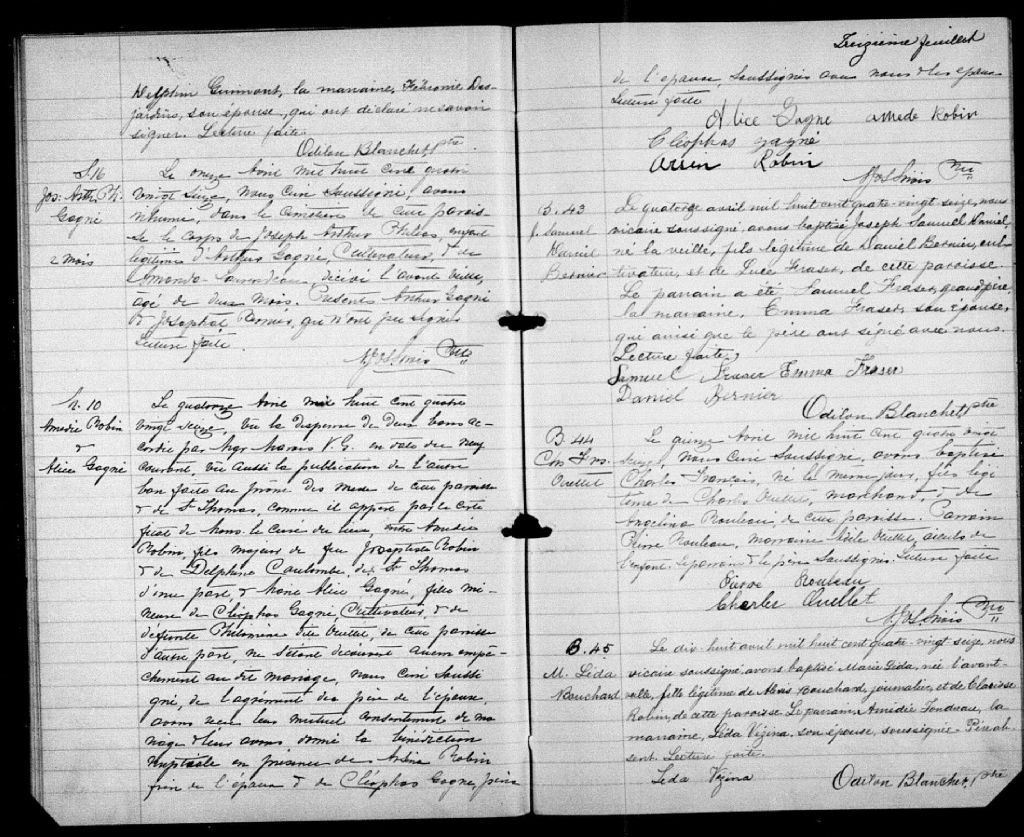 Delphin Guimont, la marraine, Fébronie Des-
jardins, son épouse, qui ont déclaré ne savoir
signer. Lecture faite.
Odilon Blanchet, ptre
S. 16
Jos: Arth. Ph.
Gagné
2 mois
Le onze Avril mil huit cent quatre
vingt seize, nous Curé soussigné, avons
inhumé, dans le cimetière de cette parois-
se le corps de Joseph Arthur Philias, enfant
légitime d'Arthur Gagné, Cultivateur, & de
Amanda décédé l'avant veille,
agé de deux mois. Présents Arthur Gagné
& Josaphat Bernier, qui n'ont pu signer
Lecture faite.
Ptre
M. 10
Amédée Robin
&
Alice Gagné
Le quatorze Avril mil huit cent quatre
vingt seize, Vu la dispense de deux bans ac-
cordée par Mgr Marois V. G. en date du neuf
courant, vu aussi la publication de l'autre
ban faite au prône des messes de cette paroisse
& de St Thomas, comme il appert par le certi
ficat de Mons. le curé du lieu entre Amédée
Robin, fils majeur de feu Jn Baptiste Robin
& de Delphine Coulombe, de St Thomas
d'une part, & Marie Alice Gagné, fille mi-
neure de Cléophas Gagné, Cultivateur, & de
défunte Philomène Ouellet, de cette paroisse
d'autre part, ne s'étant découvert aucun empê-
chement au dit mariage, nous Curé soussi
gné, de l'agrément du père de l'épouse,
avons reçu leur mutuel consentement de ma
riage & leur avons donné la bénédiction
nuptiale en présence de Robin
frère de l'époux & de Cléophas Gagné, père
Treizième feuillet
de l'épouse, soussignés avec nous & les époux
Lecture faite
Alice Gagné amédé Robin
Cléophas gagné
Robin
Ptre
B. 43
J. Samuel
Daniel
Bernier
Le quatorze avril mil huit cent quatre-vingt seize, nous
vicaire soussigné, avons baptisé Joseph Samuel Daniel,
né la veille, fils légitime de Daniel Bernier, cul-
tivateur, et de Luce Fraser, de cette paroisse.
Le parrain a été Samuel Fraser, grand père,
la marraine, Emma Fraser, son épouse,
qui ainsi que le père ont signé avec nous.
Lecture faite.
Samuel Fraser Emma Fraser
Daniel Bernier
Odilon Blanchet, ptre
B 44
Chs Frs.
Ouellet
Le quinze Avril mil huit cent quatre vingt
seize, nous Curé soussigné, avons baptisé
Charles François, né le même jour, fils légi
time de Charles Ouellet, marchand, & de
Angelina Rouleau, de cette paroisse. Parrain
Pierre Rouleau, marraine Adèle Ouellet, aieuls de
l'enfant. Le parrain & le père soussignés. Lecture faite
Pierre Rouleau
Charles Ouellet
Ptre
B. 45
M. Léda
Bouchard
Le dix huit avril mil huit cent quatre-vingt seize, nous
vicaire soussigné avons baptisé Marie Léda, née l'avant-
veille, fille légitime de Alexis Bouchard, journalier, et de Clarisse
Robin, de cette paroisse. Le parrain Amédée la
marraine, Léda Vézina, son épouse, soussignée. Père ab-
sent. Lecture faite.
Léda Vézina
Odilon Blanchet, Ptre